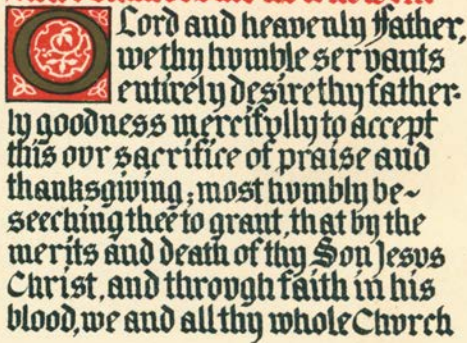 O Lord and heavenly Father,
we thy hvmble servants
entirely desire thy father-
ly goodness mercifvlly to accept
this ovr sacrifice of praise and
thanksgiving; most hvmbly be~
seeching thee to grant, that by the
merits and death of thy Son Jesvs
Christ, and throvgh faith in his
blood, we and all thy whole Chvrch